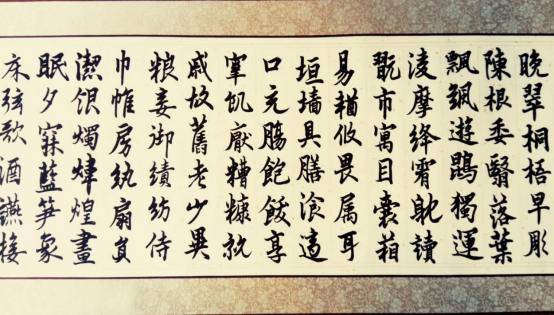 晚翠桐梧早彫
陳根委翳落葉
飄颻遊鵾獨運
淩摩絳霄耽讀
翫市寓目囊箱
易輶攸畏属耳
垣墙具膳飡適
口充腸飽飫享
宰飢厭糟糠親
戚故舊老少異
粮妾御績紡侍
巾帷房紈扇員
潔銀燭煒煌晝
眠夕寐藍笋象
床弦歌酒讌接